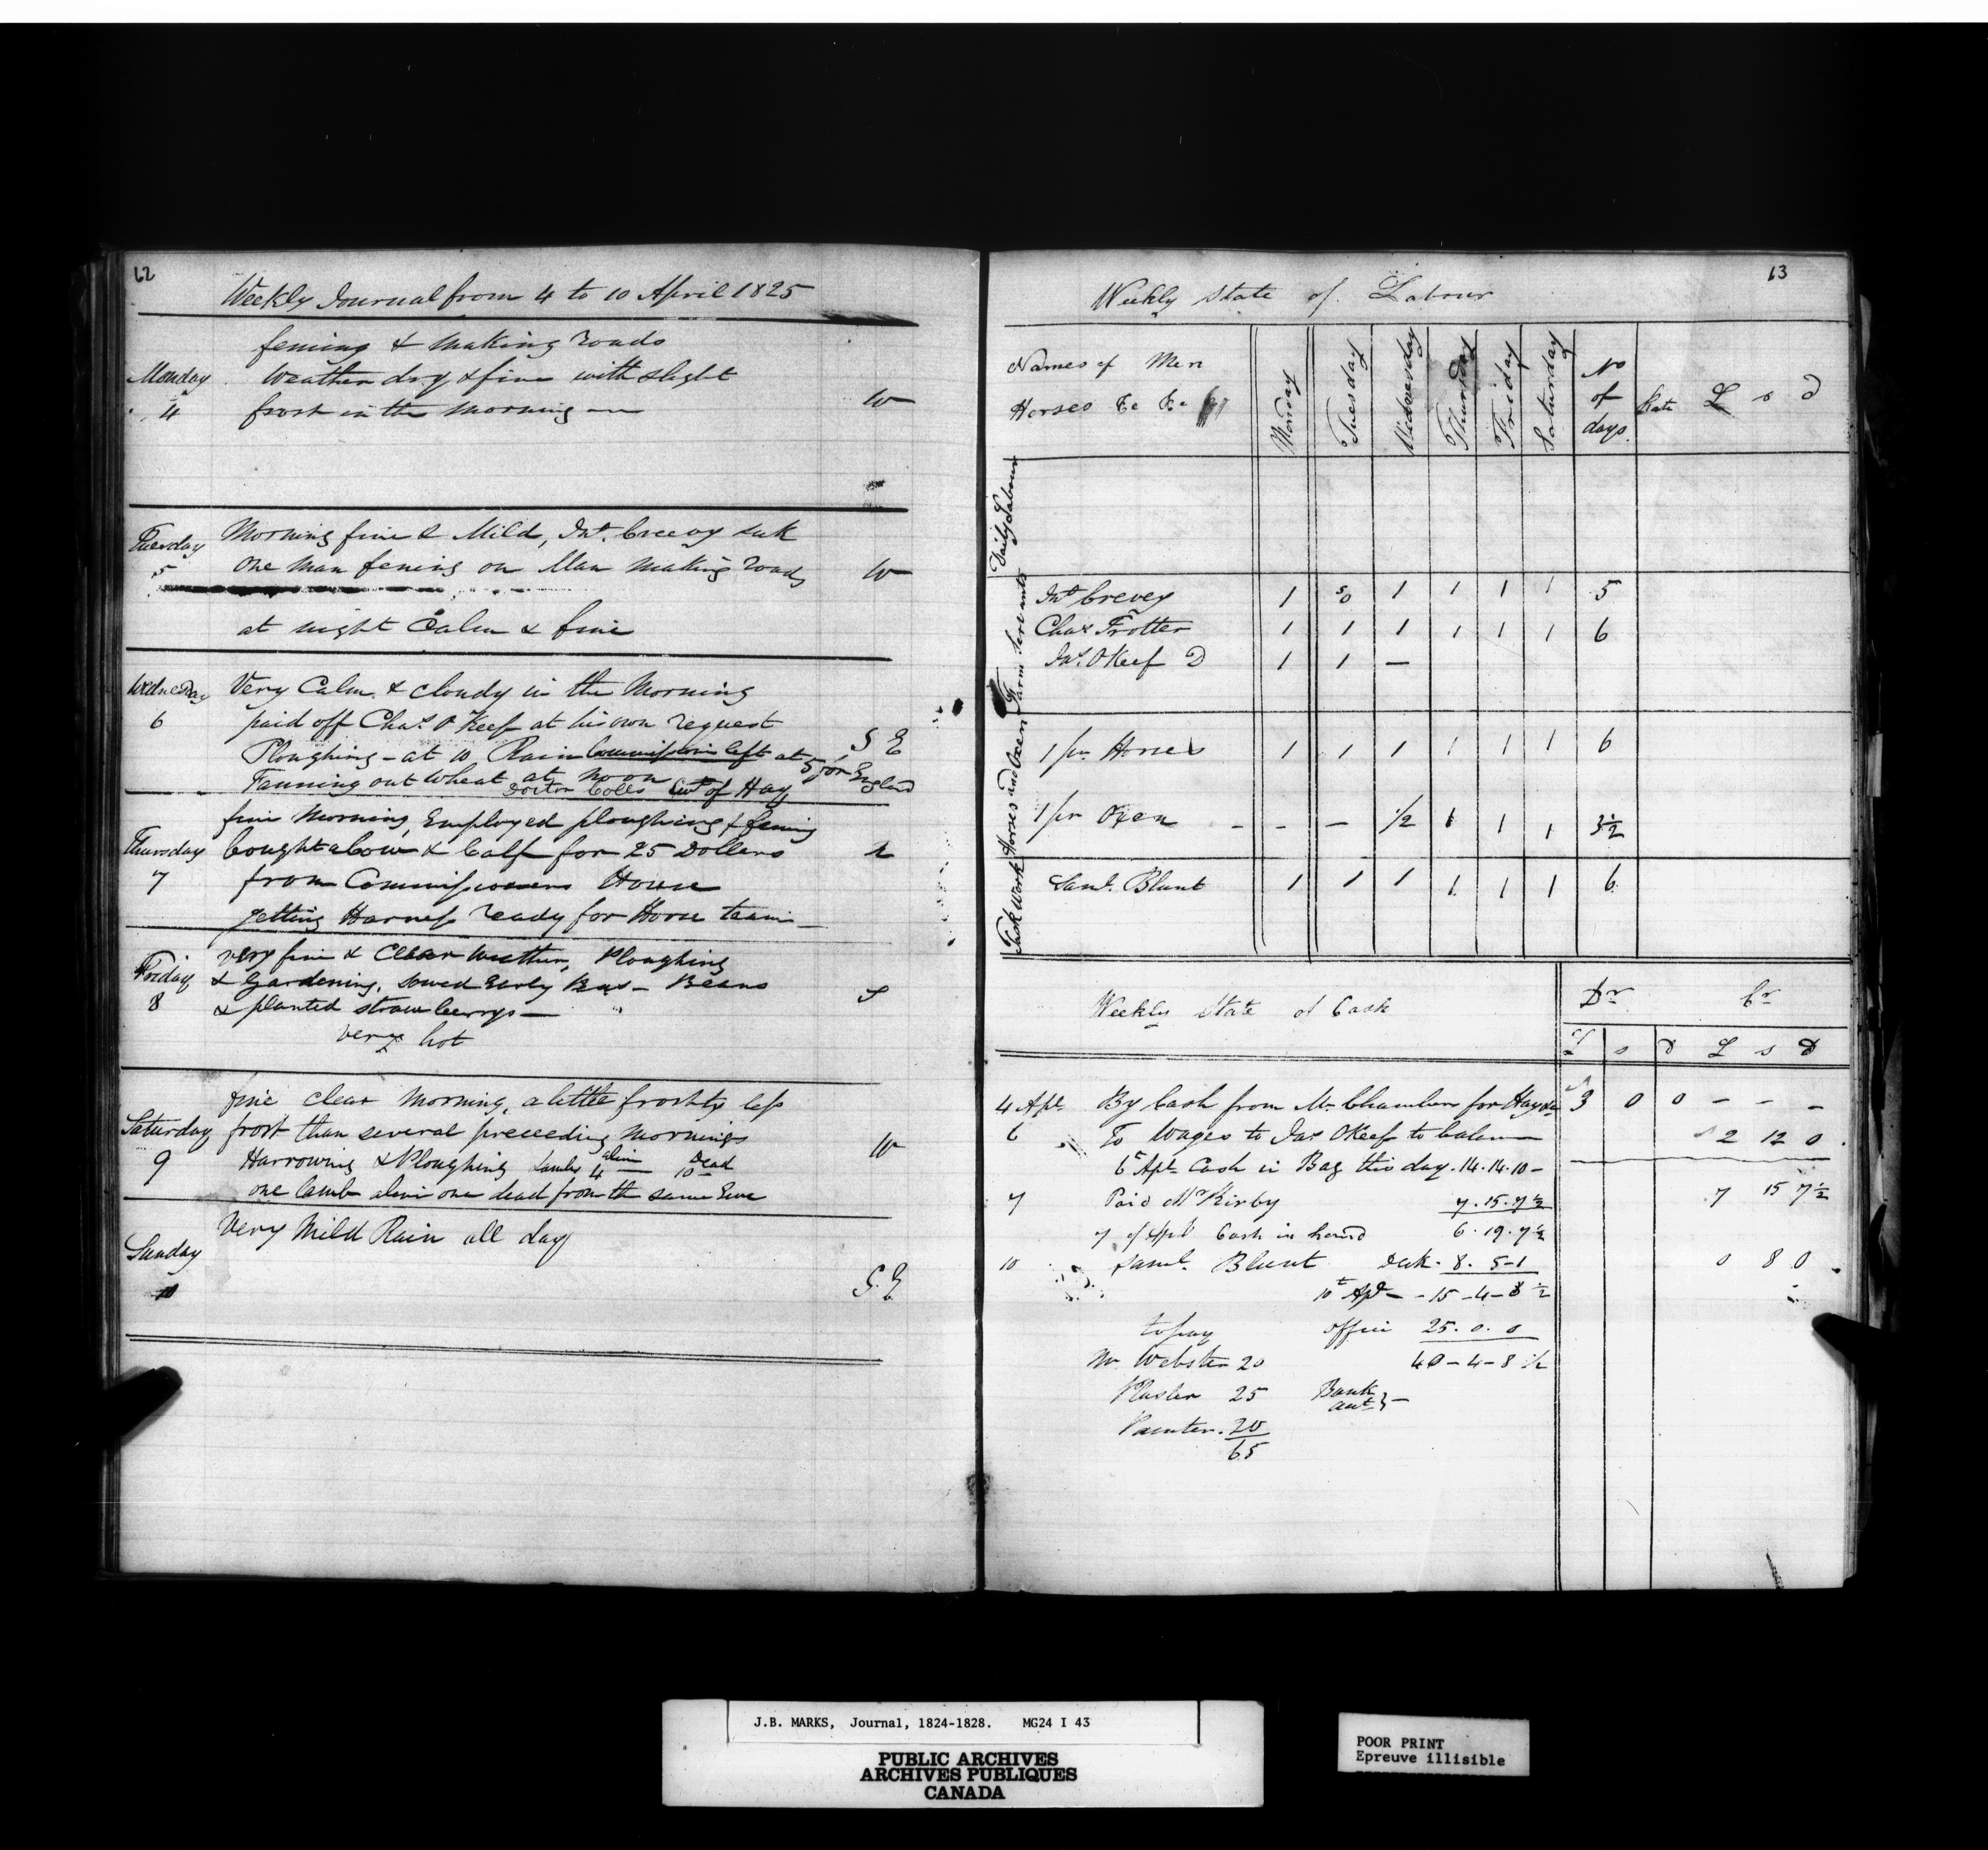 62
Weekly Journal from 4 to 10 April 1825
Monday
4
fencing & making roads
Weather dry & fine with slight
frost in the Morning
W
Tuesday
5
Morning fine & Mild, Jno. Creevy sick
One Man fencing on Man making roads
W
at night Calm & fine
Wednesday
6
Very Calm & cloudy in the Morning
paid off Chas. O Keef at his own request
Ploughing - at 10 Rain Commissioner left at 5 for England
S E
Fanning out Wheat at noon
Doctor Coles Cwt of Hay
Thursday
7
fine Morning, Employed ploughing & fencing
bought a Cow & Calf for 25 Dollars
from Commissioners House
getting Harness ready for Horse team
Friday
8
very fine & Clear Weather, Ploughing
& Gardening, sowed Early Beans
& planted strawberrys
S
very hot
Saturday
9
fine clear Morning, a little frosty less
frost than several preceeding mornings
W
Harrowing & Ploughing Lambs 4 alive 10 Dead
one lamb alive one dead from the same Ewe
Sunday
10
Very Mild Rain all day
S. E
63
Weekly State of Labour
Names of Men
Horses &c &c
Monday Tuesday Wednesday Thursday Friday Saturday No of days Rate £ s d
Daily Labour
Farm Servants
Jno Crevey 1 0 1 1 1 1 5
Chas Trotter 1 1 1 1 1 1 6
Jas. OKeef D 1 1 —
Horses and Oxen
1 pr Horses 1 1 1 1 1 1 6
1 pr Oxen - - — 1/2 1 1 1 3 1/2
Task Work
Saml. Blunt 1 1 1 1 1 1 6
Weekly State of Cash
Dr Cr
£ s d £ s D
4 Apl. By Cash from Mr Chambers for Hay 3 0 0 - - -
6 To Wages to Jas OKeef to balance 2 12 0
6 Apl. Cash in Bag this day. 14.14.10 -
7 Paid Mr Kirby 7.15.7 1/2 7 15 7 1/2
7 of Apl Cash in hand 6.19.7 1/2
10 Saml. Blunt Desk. 8. 5-1 0 8 0
10th Apl - - 15 -4-8 1/2
to pay office 25. 0. 0
Mr Webster 20 40-4-8 1/2
Plaster 25 Bank
Painter. 20
65
J.B. MARKS, Journal, 1824-1828. MG24 I 43
PUBLIC ARCHIVES
ARCHIVES PUBLIQUES
CANADA
POOR PRINT
Epreuve illisible